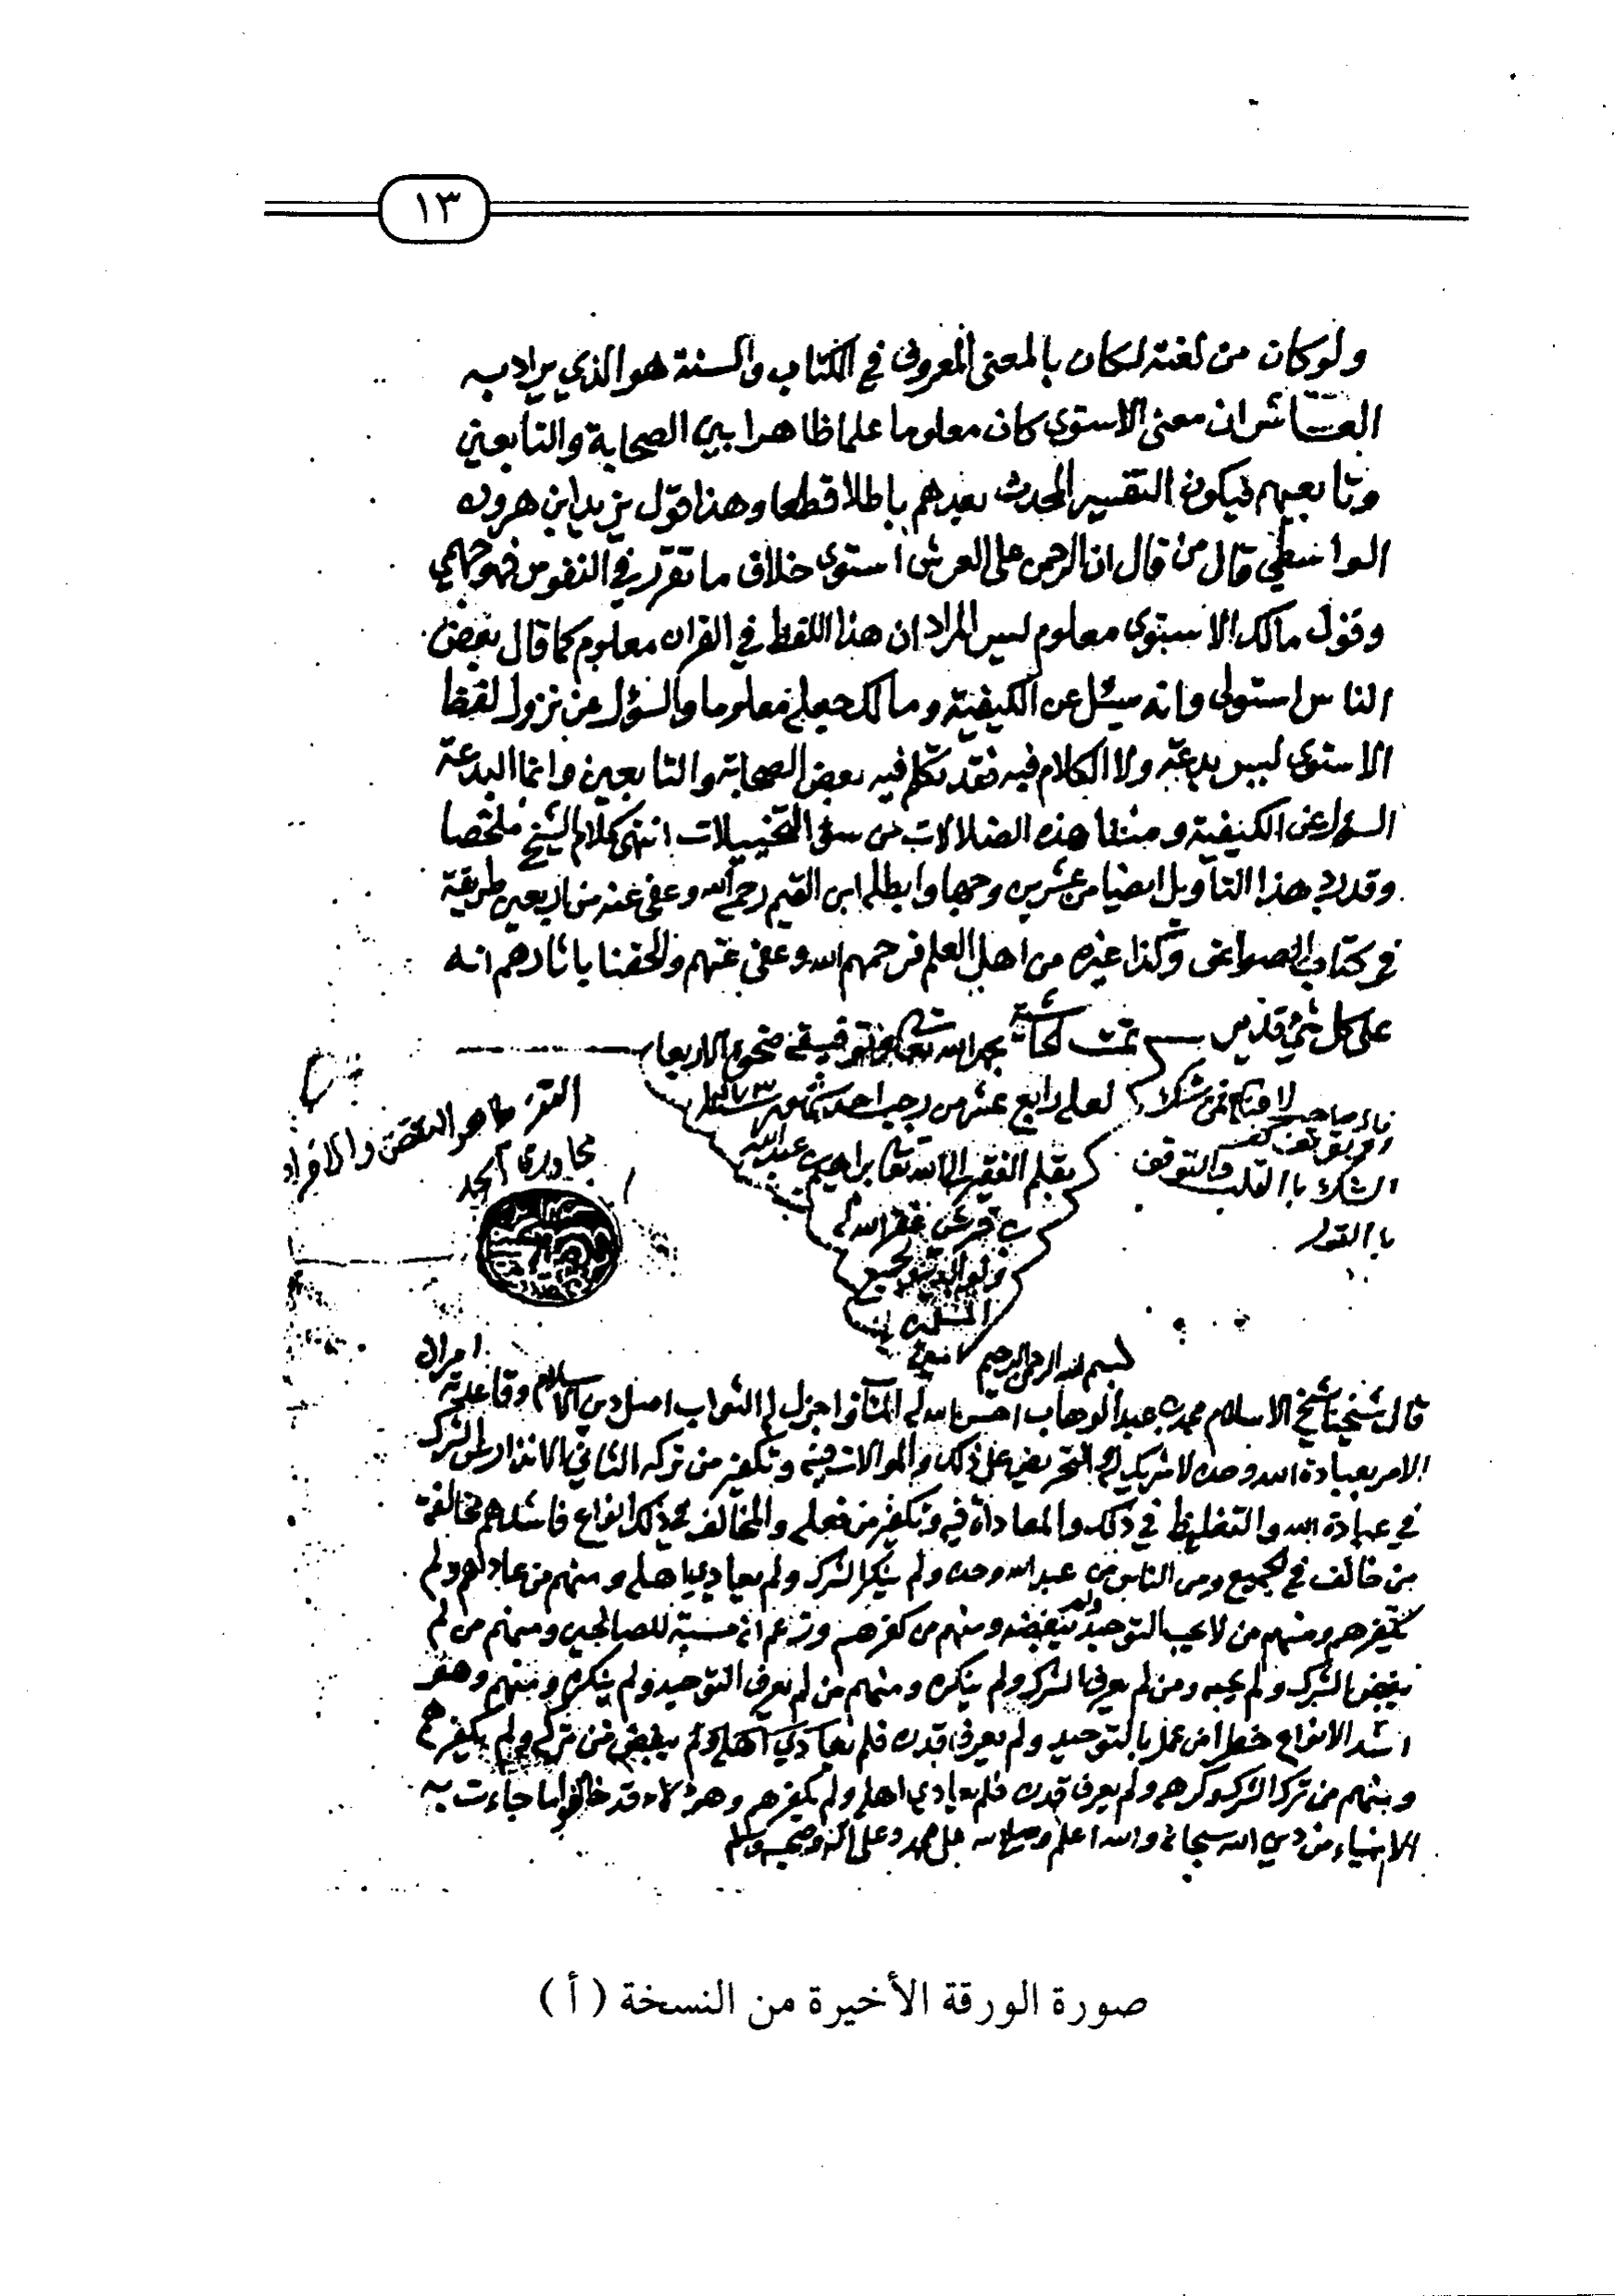 ١٣
ولو كان من لغته لكان بالمعنى المعروف في الكتاب والسنة هو الذي يراد به
العاشر ان معنى الاستوى كان معلوما علما ظاهرا بين الصحابة والتابعين
وتابعيهم فيكون التفسير المحدث بعدهم باطلا قطعا وهذا قول يزيد ابن هرون
الواسطي قال من قال ان الرحمن على العرش استوى خلاف ما تقرر في النفوس فهو جهمي
وقول مالك الاستوى معلوم ليس المراد ان هذا اللفظ في القران معلوم كما قال بعض
الناس استولى وانه سئل عن الكيفية ومالك جعلها معلوما والسؤل عن نزول لفظ
الاستوى ليس بدعة ولا الكلام فيه فقد تكلم فيه بعض الصحابة والتابعين وانما البدعة
السؤل عن الكيفية ومنشا هذه الضلالات من سوء التخييلات انتهى كلام الشيخ ملخصا
وقد رد هذا التأويل ايضا من عشرين وجها وابطله ابن القيم رحمه الله وعفى عنه من اربعين طريقة
في كتاب الصواعق وكذا غيره من اهل العلم فرحمهم الله وعفى عنهم والحقنا باثارهم انه
على كل شيء قدير تمت بحمد الله تعالى وتوفيقه ضحوة الاربعاء
لعله رابع عشر من رجب احد شهور
بقلم الفقير الى الله تعالى ابراهيم بن عبد الله
بن غفر الله له
ولوالديه ولجميع
المسلمين
امين
الشك بالقلب والتوقف
بالقول
بسم الله الرحمن الرحيم
قال شيخنا شيخ الاسلام محمد بن عبد الوهاب احسن الله له المئاب واجزل له الثواب اصل دين الاسلام وقاعدته امران
الامر بعبادة الله وحده لا شريك له والتحريض على ذلك والموالات فيه وتكفير من تركه الثاني الانذار عن الشرك
في عبادة الله والتغليظ في ذلك والمعاداة فيه وتكفير من فعله والمخالف في ذلك انواع فاشدهم مخالفة
من خالف في الجميع ومن الناس من عبد الله وحده ولم ينكر الشرك ولم يعادي اهله ومنهم من عاداهم ولم
يكفرهم ومنهم من لا يحب التوحيد ولم يبغضه ومنهم من كفرهم وزعم انه مسبة للصالحين ومنهم من لم
يبغض الشرك ولم يحبه ومن لم يعرف الشرك ولم ينكره ومنهم من لم يعرف التوحيد ولم ينكره ومنهم وهو
اشد الانواع خطرا من عمل بالتوحيد ولم يعرف قدره فلم يعادي اهله ولم يبغض من تركه ولم يكفرهم
ومنهم من ترك الشرك وكرهه ولم يعرف قدره فلم يعادي اهله ولم يكفرهم وهؤلاء قد خالفوا ما جاءت به
الانبياء من دين الله سبحانه والله اعلم وصلى الله على محمد وعلى اله وصحبه وسلم
صورة الورقة الأخيرة من النسخة (أ)